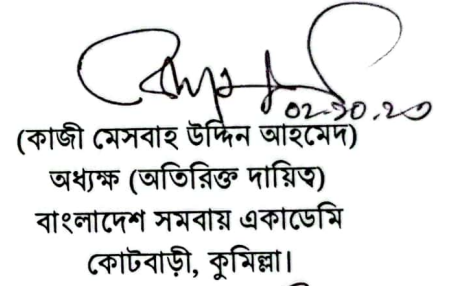 ০২.১০.২৩
(কাজী মেসবাহ উদ্দিন আহমেদ)
অধ্যক্ষ (অতিরিক্ত দায়িত্ব)
বাংলাদেশ সমবায় একাডেমি
কোটবাড়ী, কুমিল্লা।